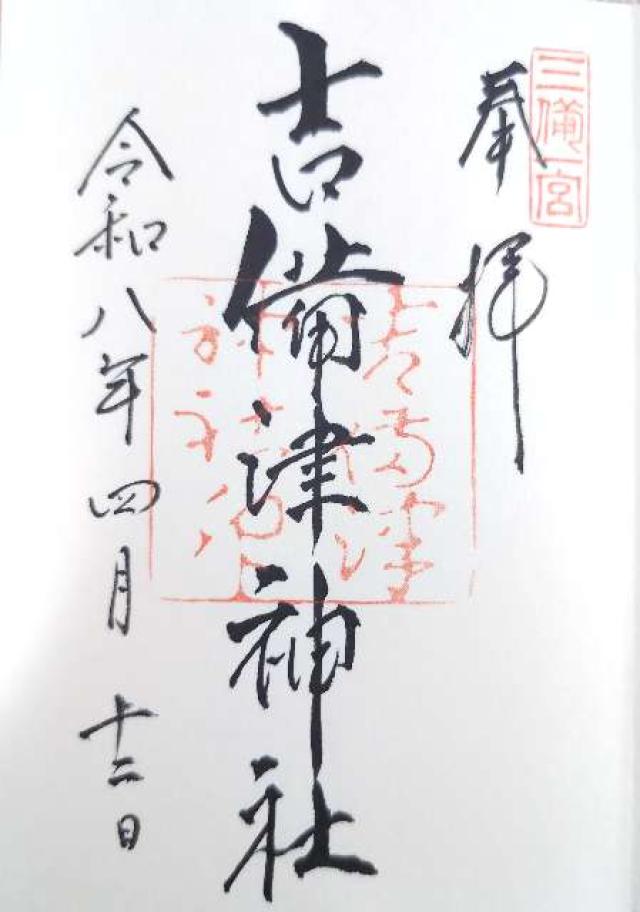 三備一宮
奉拝
吉備津神社
令和八年四月十二日